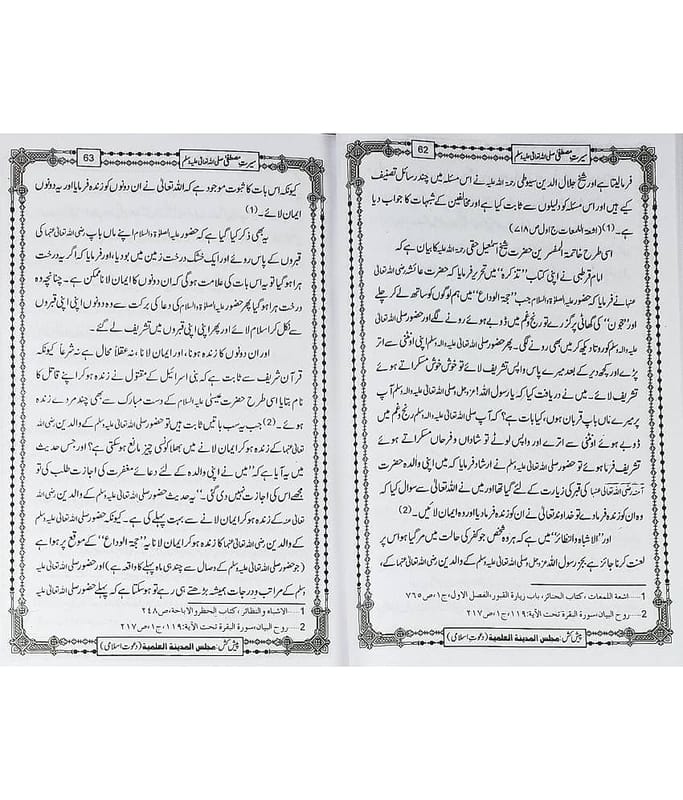 سیرتِ مصطفیٰ صلی اللہ تعالیٰ علیہ وسلم
62
فرمالیتا ہے اور شیخ جلال الدین سیوطی رحمۃ اللہ علیہ نے اس مسئلہ میں چند رسائل تصنیف
کیے ہیں اور اس مسئلہ کو دلیلوں سے ثابت کیا ہے اور مخالفین کے شبہات کا جواب دیا
ہے۔(1) (اشعۃ اللمعات ج اول ص ۷۱۸)
اسی طرح خاتمۃ المفسرین حضرت شیخ اسمٰعیل حقی رحمۃ اللہ علیہ کا بیان ہے کہ
امام قرطبی نے اپنی کتاب ’’تذکرہ‘‘ میں تحریر فرمایا کہ حضرت عائشہ رضی اللہ تعالیٰ
عنہا نے فرمایا کہ حضور علیہ الصلوٰۃ والسلام جب ’’حجۃ الوداع‘‘ میں ہم لوگوں کو ساتھ لے کر چلے
اور ’’حجون‘‘ کی گھاٹی پر گزرے تو رنج و غم میں ڈوبے ہوئے رونے لگے اور حضور صلی اللہ تعالیٰ
علیہ والہ وسلم کو روتا دیکھ کر میں بھی رونے لگی۔ پھر حضور صلی اللہ تعالیٰ علیہ والہ وسلم اپنی اونٹنی سے اتر
پڑے اور کچھ دیر کے بعد میرے پاس واپس تشریف لائے تو خوش خوش مسکراتے ہوئے
تشریف لائے۔ میں نے دریافت کیا کہ یارسول اللہ! عزوجل وصلی اللہ تعالیٰ علیہ والہ وسلم آپ
پر میرے ماں باپ قربان ہوں، کیا بات ہے؟ کہ آپ صلی اللہ تعالیٰ علیہ والہ وسلم رنج و غم میں
ڈوبے ہوئے اونٹنی سے اترے اور واپس لوٹے تو شاداں و فرحاں مسکراتے ہوئے
تشریف فرما ہوئے تو حضور صلی اللہ تعالیٰ علیہ وسلم نے ارشاد فرمایا کہ میں اپنی والدہ حضرت
آمنہ رضی اللہ تعالیٰ عنہا کی قبر کی زیارت کے لئے گیا تھا اور میں نے اللہ تعالیٰ سے سوال کیا کہ
وہ ان کو زندہ فرمادے تو خداوند تعالیٰ نے ان کو زندہ فرمادیا اور وہ ایمان لائیں۔(2)
اور ’’الاشباہ والنظائر‘‘ میں ہے کہ ہر وہ شخص جو کفر کی حالت میں مر گیا ہو اس پر
لعنت کرنا جائز ہے بجز رسول اللہ عزوجل وصلی اللہ تعالیٰ علیہ وسلم کے والدین رضی اللہ تعالیٰ عنہما کے،
1.....اشعة اللمعات، كتاب الجنائز، باب زيارة القبور، الفصل الاول، ج۱، ص۷٦٥
2.....روح البيان، سورة البقرة تحت الآية:۱۱۹، ج۱، ص۲۱۷
پیش کش: مجلس المدينة العلمية (دعوتِ اسلامی)
سیرتِ مصطفیٰ صلی اللہ تعالیٰ علیہ وسلم
63
کیونکہ اس بات کا ثبوت موجود ہے کہ اللہ تعالیٰ نے ان دونوں کو زندہ فرمایا اور یہ دونوں
ایمان لائے۔(1)
یہ بھی ذکر کیا گیا ہے کہ حضور علیہ الصلوٰۃ والسلام اپنے ماں باپ رضی اللہ تعالیٰ عنہما کی
قبروں کے پاس روئے اور ایک خشک درخت زمین میں بو دیا، اور فرمایا کہ اگر یہ درخت
ہرا ہو گیا تو یہ اس بات کی علامت ہو گی کہ ان دونوں کا ایمان لانا ممکن ہے۔ چنانچہ وہ
درخت ہرا ہو گیا پھر حضور علیہ الصلوٰۃ والسلام کی دعا کی برکت سے وہ دونوں اپنی اپنی قبروں
سے نکل کر اسلام لائے اور پھر اپنی اپنی قبروں میں تشریف لے گئے۔
اور ان دونوں کا زندہ ہونا، اور ایمان لانا، نہ عقلاً محال ہے نہ شرعاً کیونکہ
قرآن شریف سے ثابت ہے کہ بنی اسرائیل کے مقتول نے زندہ ہو کر اپنے قاتل کا
نام بتایا اسی طرح حضرت عیسیٰ علیہ السلام کے دست مبارک سے بھی چند مردے زندہ
ہوئے۔(2) جب یہ سب باتیں ثابت ہیں تو حضور صلی اللہ تعالیٰ علیہ وسلم کے والدین رضی اللہ
تعالیٰ عنہما کے زندہ ہو کر ایمان لانے میں بھلا کونسی چیز مانع ہو سکتی ہے؟ اور جس حدیث
میں یہ آیا ہے کہ ’’میں نے اپنی والدہ کے لئے دعائے مغفرت کی اجازت طلب کی تو
مجھے اس کی اجازت نہیں دی گئی۔‘‘ یہ حدیث حضور صلی اللہ تعالیٰ علیہ وسلم کے والدین رضی اللہ
تعالیٰ عنہ کے زندہ ہو کر ایمان لانے سے بہت پہلے کی ہے۔ کیونکہ حضور صلی اللہ تعالیٰ علیہ وسلم
کے والدین رضی اللہ تعالیٰ عنہما کا زندہ ہو کر ایمان لانا یہ ’’حجۃ الوداع‘‘ کے موقع پر ہوا ہے
(جو حضور صلی اللہ تعالیٰ علیہ وسلم کے وصال سے چند ہی ماہ پہلے کا واقعہ ہے) اور حضور صلی اللہ تعالیٰ علیہ
وسلم کے مراتب و درجات ہمیشہ بڑھتے ہی رہے تو ہو سکتا ہے کہ پہلے حضور صلی اللہ تعالیٰ علیہ
1.....الاشباه والنظائر، كتاب الحظر والاباحة، ص۲٤۸
2.....روح البيان، سورة البقرة تحت الآية:۱۱۹، ج۱، ص۲۱۷
پیش کش: مجلس المدينة العلمية (دعوتِ اسلامی)